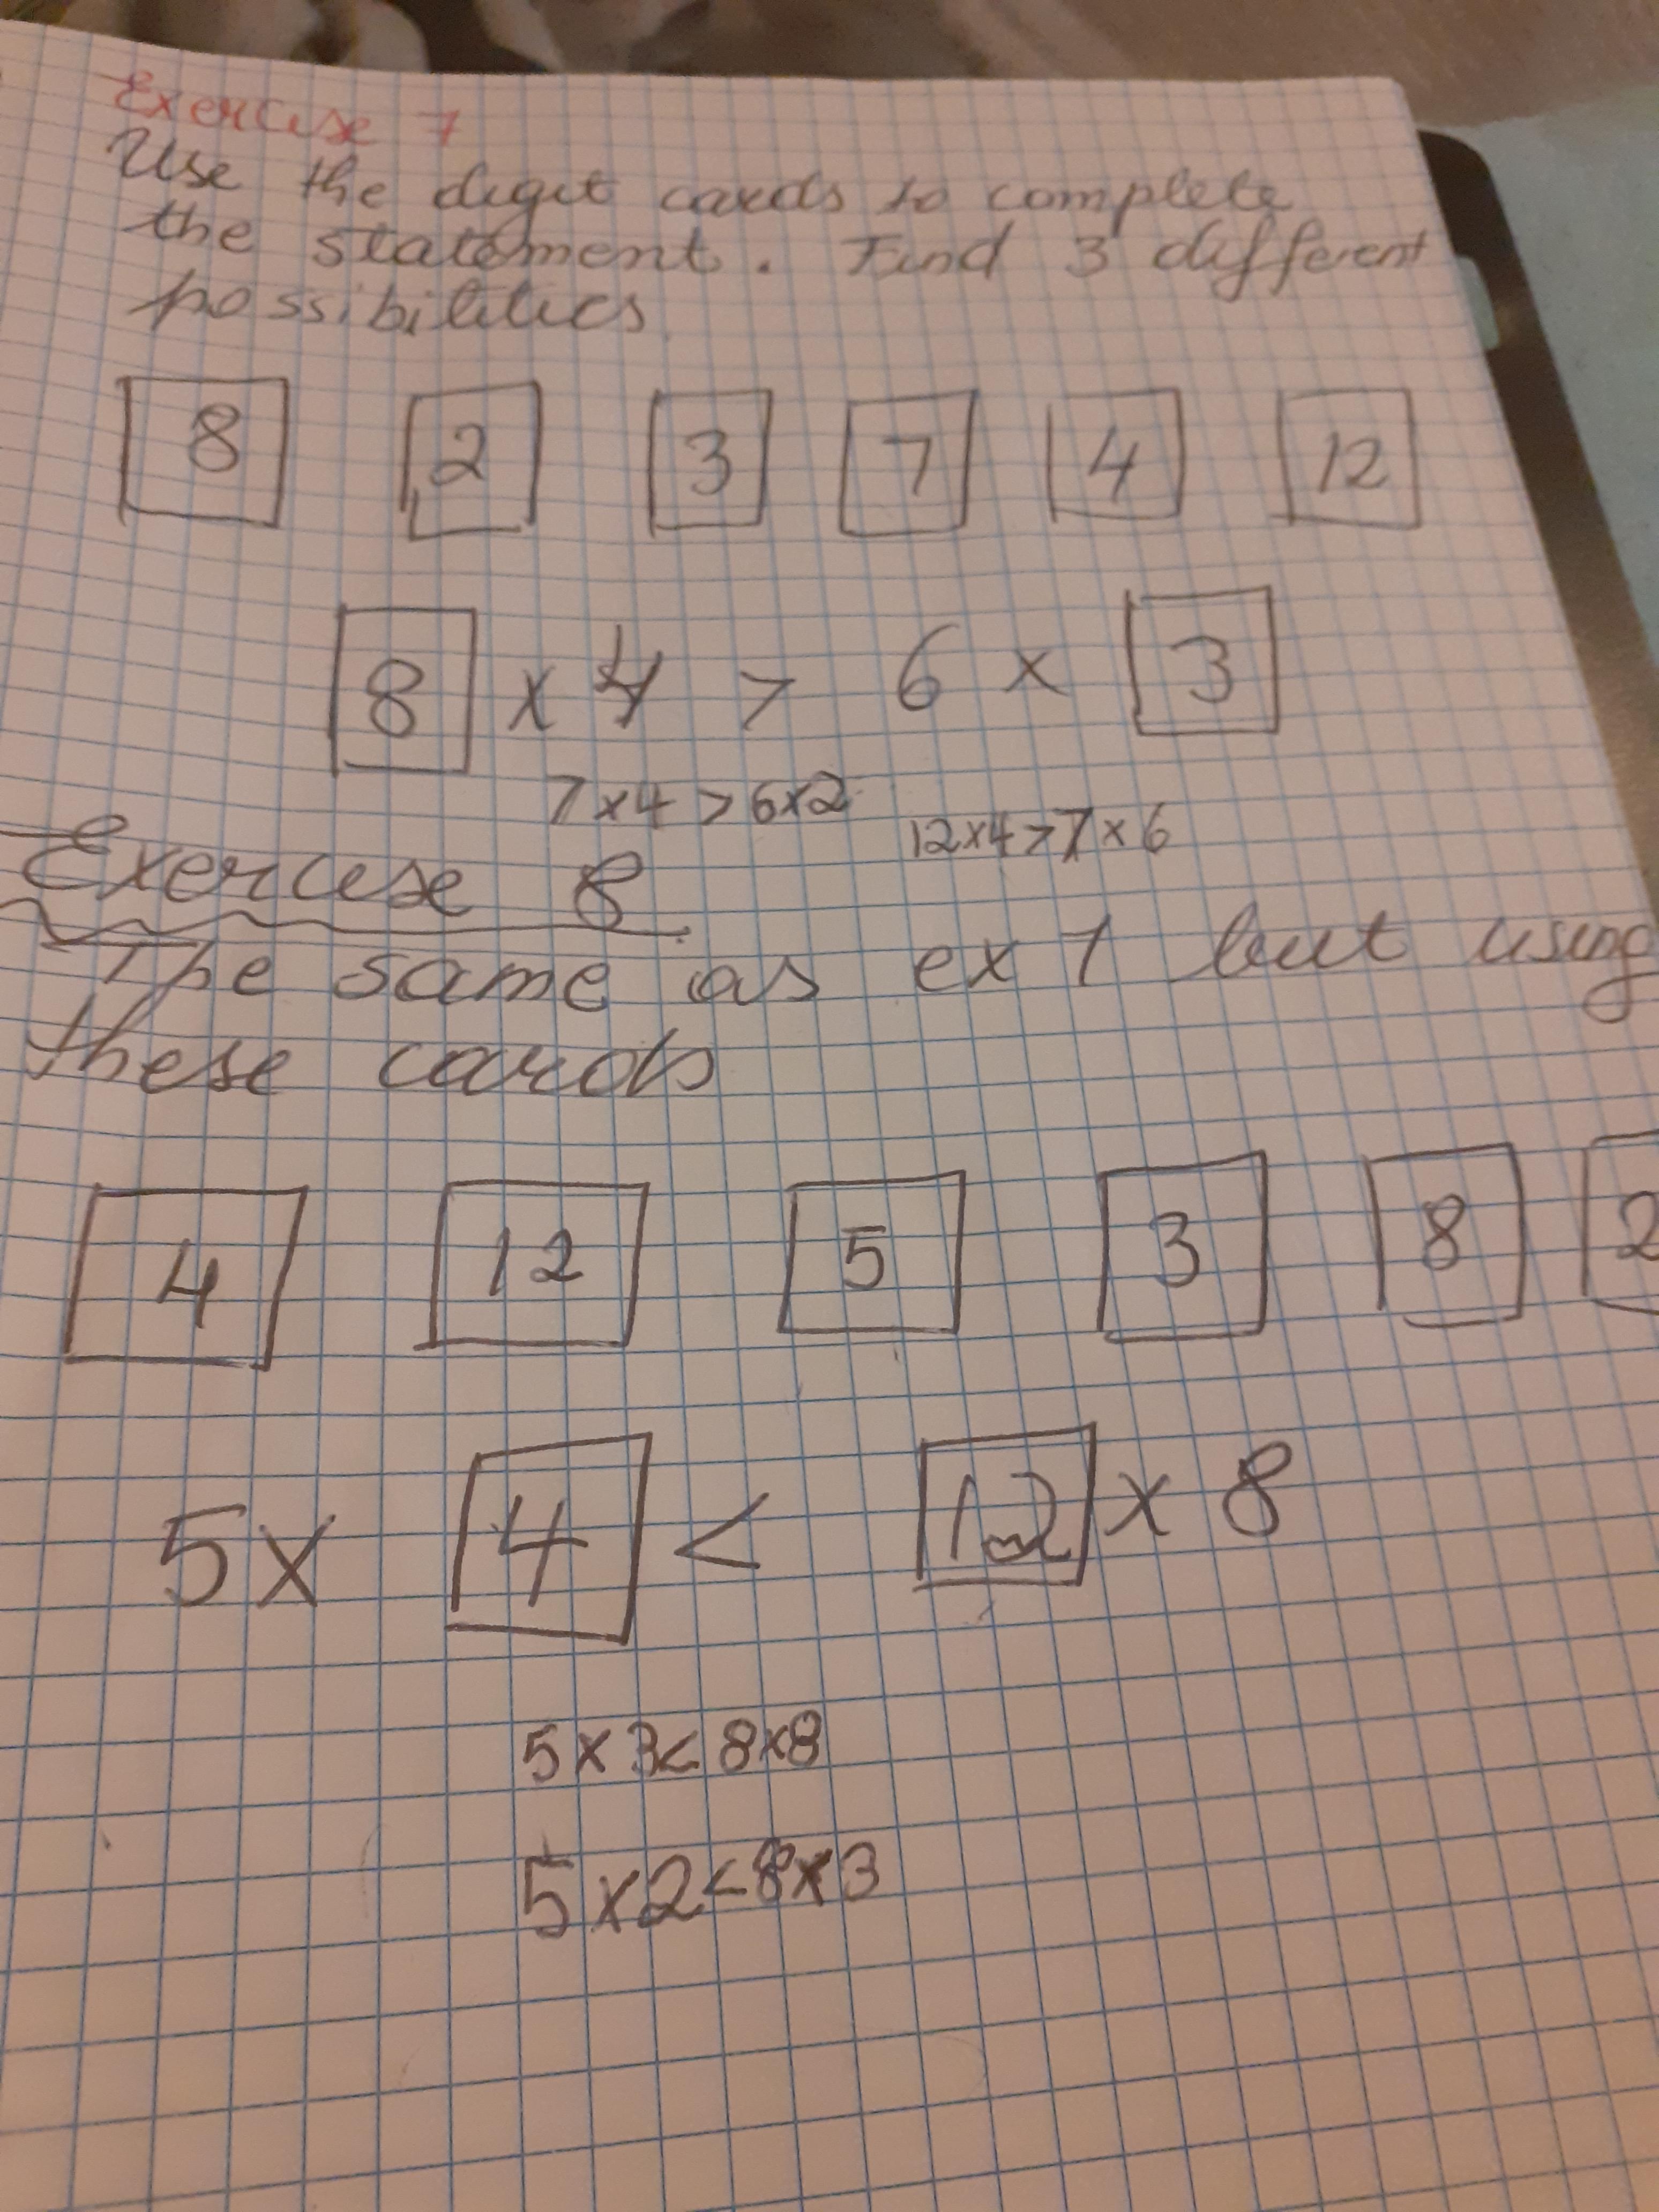 Exercise 7
Use the digit cards to complete
the statement. Find 3 different
possibilities
8 2 3 7 4 12
8 x 4 > 6 x 3
7x4 > 6x2
12x4>7x6
Exercise 8
The same as ex 1 but using
these cards
4 12 5 3 8 2
5x 4 < 12 x 8
5x3<8x8
5x2<8x3